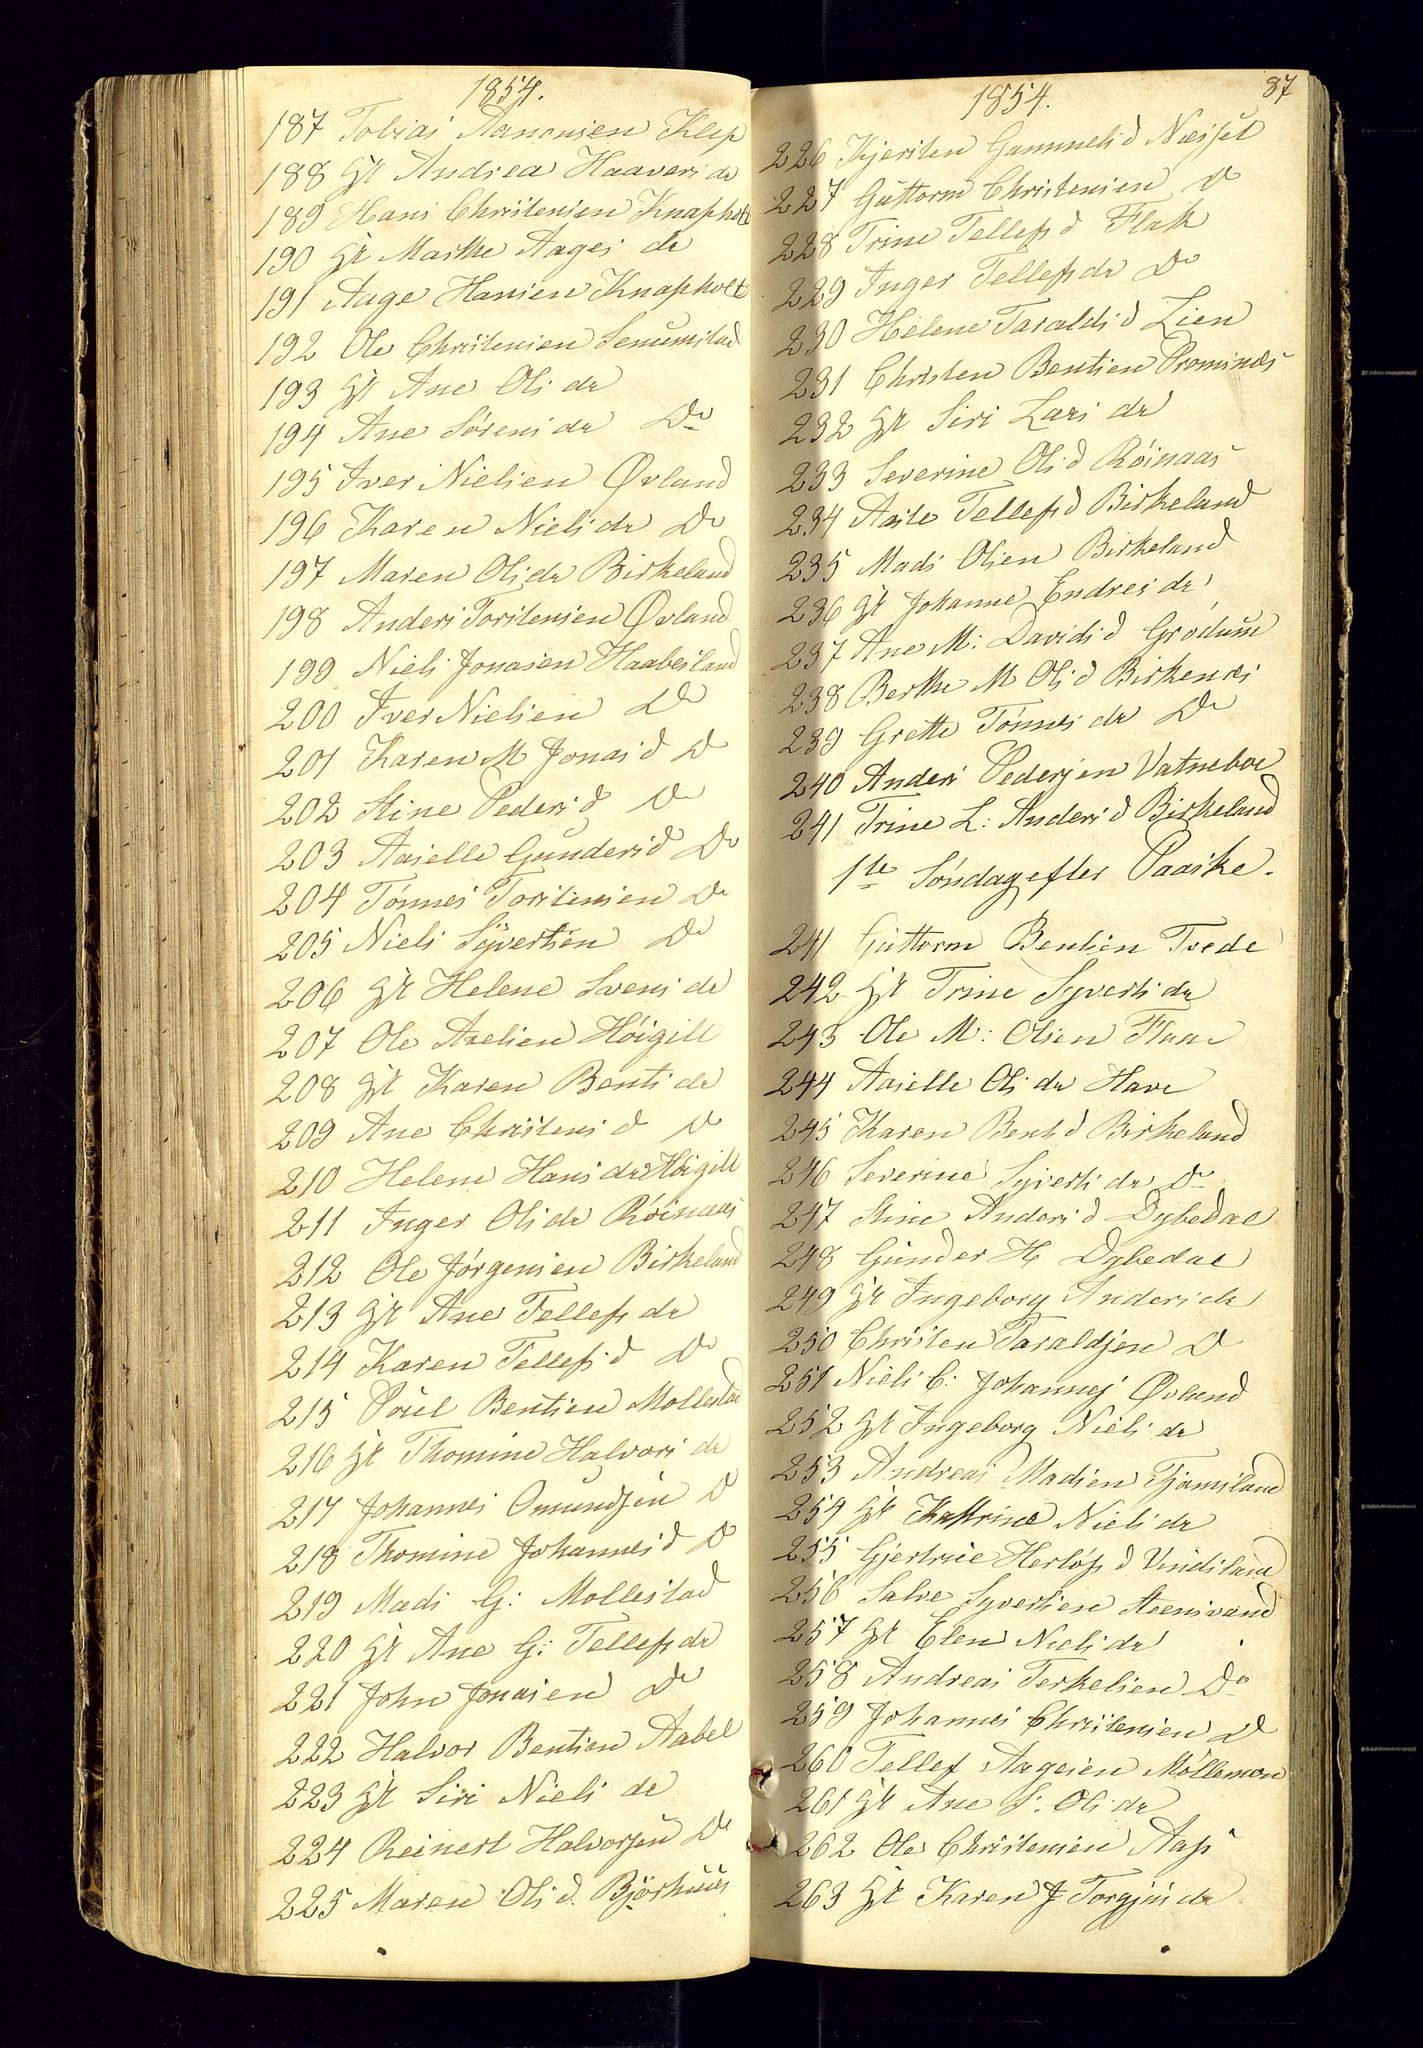 1854.
187 Tobias Aanonsen Klep
188 Gt Andrea Haavers dr
189 Hans Christensen Knapholt
190 Gt Marthe Aages dr
191 Aage Hansen Knapholt
192 Ole Christensen Senumstad
193 Gt Ane Ols dr
194 Ane Sörens dr Do
195 Iver Nielsen Øvland
196 Karen Niels dr Do
197 Maren Ols dr Birkeland
198 Anders Torstensen Øvland
199 Niels Jonasen Haabesland
200 Iver Nielsen Do
201 Karen M Jonas d Do
202 Stine Peders d Do
203 Aaselle Gunders d Do
204 Tönnes Torstensen Do
205 Niels Syvertsen Do
206 Gt Helene Svens dr
207 Ole Axelsen Höigilt
208 Gt Karen Bents dr
209 Ane Christens d Do
210 Helene Hans dr Höigilt
211 Inger Ols dr Röinaas
212 Ole Jörgensen Birkeland
213 Gt Ane Tellefs dr
214 Karen Tellefs d Do
215 Poul Bentsen Mollestad
216 Gt Thomine Halvors dr
217 Johannes Omundsen Do
218 Thomine Johannes d Do
219 Mads G: Mollestad
220 Gt Ane G: Tellefs dr
221 John Jonasen Do
222 Halvor Bentsen Aabel
223 Gt Siri Niels dr
224 Reinert Halvorsen Do
225 Maren Ols d. Björhuus
87
1854.
226 Kjersten Gummels d Næsset
227 Guttorm Christensen Do
228 Trine Tellefs d Flak
229 Inger Tellefs dr Do
230 Helene Taralds d Lien
231 Christen Bentsen Prominæs
232 Gt Siri Lars dr
233 Severine Ols d Röinaas
234 Aaste Tellefs d Birkeland
235 Mads Olsen Birkeland
236 Gt Johanne Endres dr
237 Ane M: Davids d Grödum
238 Berthe M Ols d Birkenæs
239 Grethe Tönnes dr Do
240 Anders Pedersen Vatneboe
241 Trine L: Anders d Birkeland
1te Söndag efter Paaske.
241 Guttorm Bentsen Tvede
242 Gt Trine Syverts dr
243 Ole M: Olsen Flaa
244 Aaselle Ols dr Have
245 Karen Bents d Birkeland
246 Severine Syverts dr Do
247 Stine Anders d Dybedal
248 Gunder H Dybedal
249 Gt Ingeborg Anders dr
250 Christen Taraldsen Do
251 Niels C: Johannes Øvland
252 Gt Ingeborg Niels dr
253 Andreas Madsen Tjomsland
254 Gt Kathrine Niels dr
255 Gjertrue Herlöfs d Vindsland
256 Salve Syvertsen Steensvand
257 Gt Elen Niels dr
258 Andreas Terkelsen Do
259 Johannes Christensen Do
260 Tellef Aagesen Möllemoen
261 Gt Ane S: Ols dr
262 Ole Christensen Aass
263 Gt Karen J Torgjus dr